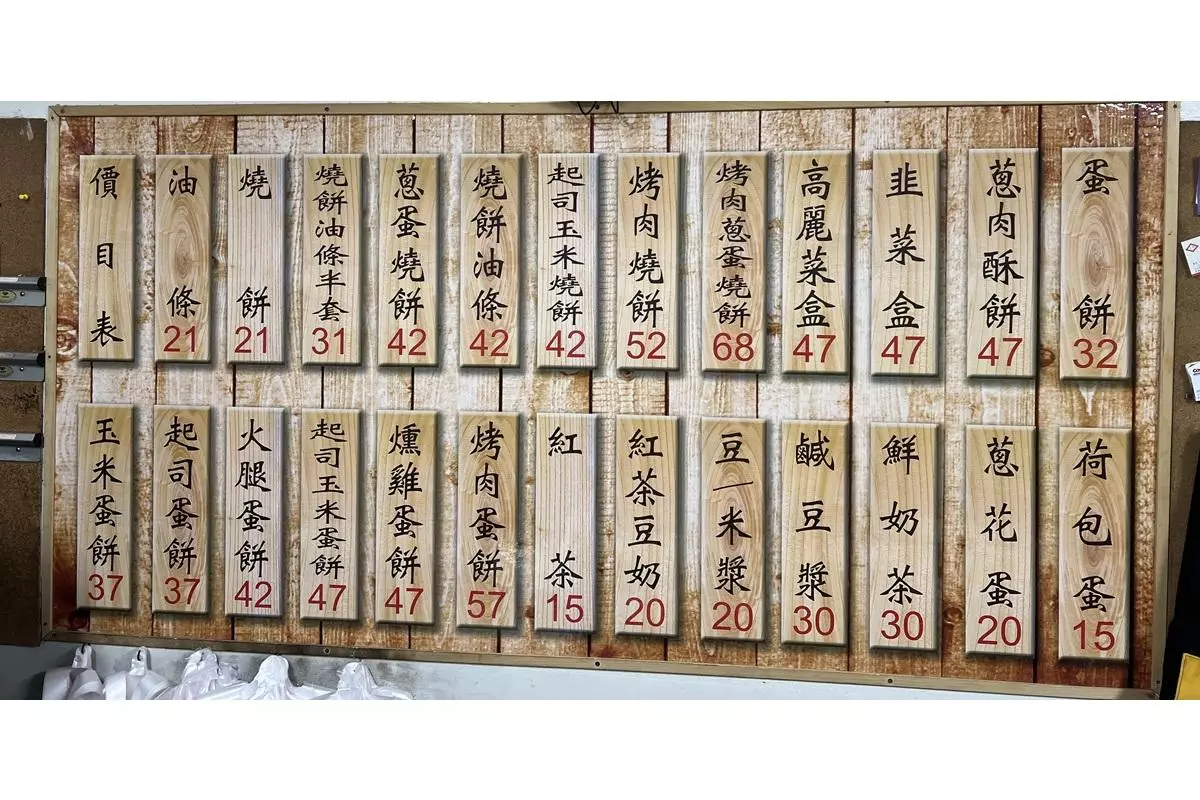 價目表
油條 21
燒餅 21
燒餅油條半套 31
蔥蛋燒餅 42
燒餅油條 42
起司玉米燒餅 42
烤肉燒餅 52
烤肉蔥蛋燒餅 68
高麗菜盒 47
韭菜盒 47
蔥肉酥餅 47
蛋餅 32
玉米蛋餅 37
起司蛋餅 37
火腿蛋餅 42
起司玉米蛋餅 47
燻雞蛋餅 47
烤肉蛋餅 57
紅茶 15
紅茶豆奶 20
豆/米漿 20
鹹豆漿 30
鮮奶茶 30
蔥花蛋 20
荷包蛋 15